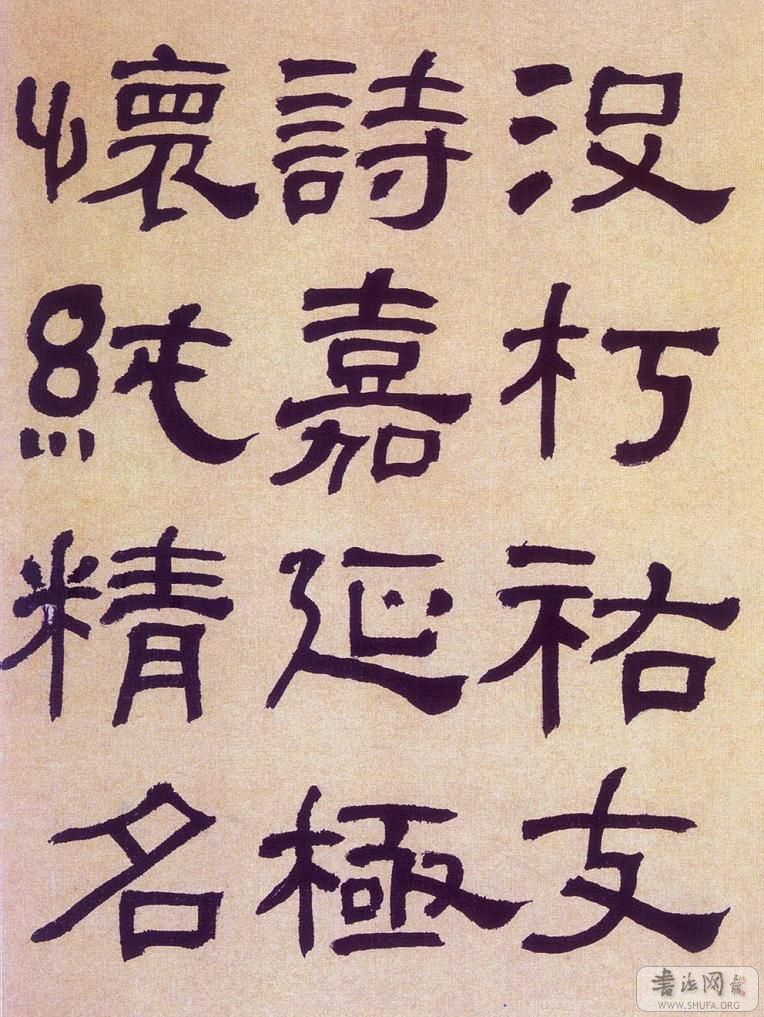 没朽祐支
詩嘉延極
懷純精名
書法网
WWW.SHUFA.ORG